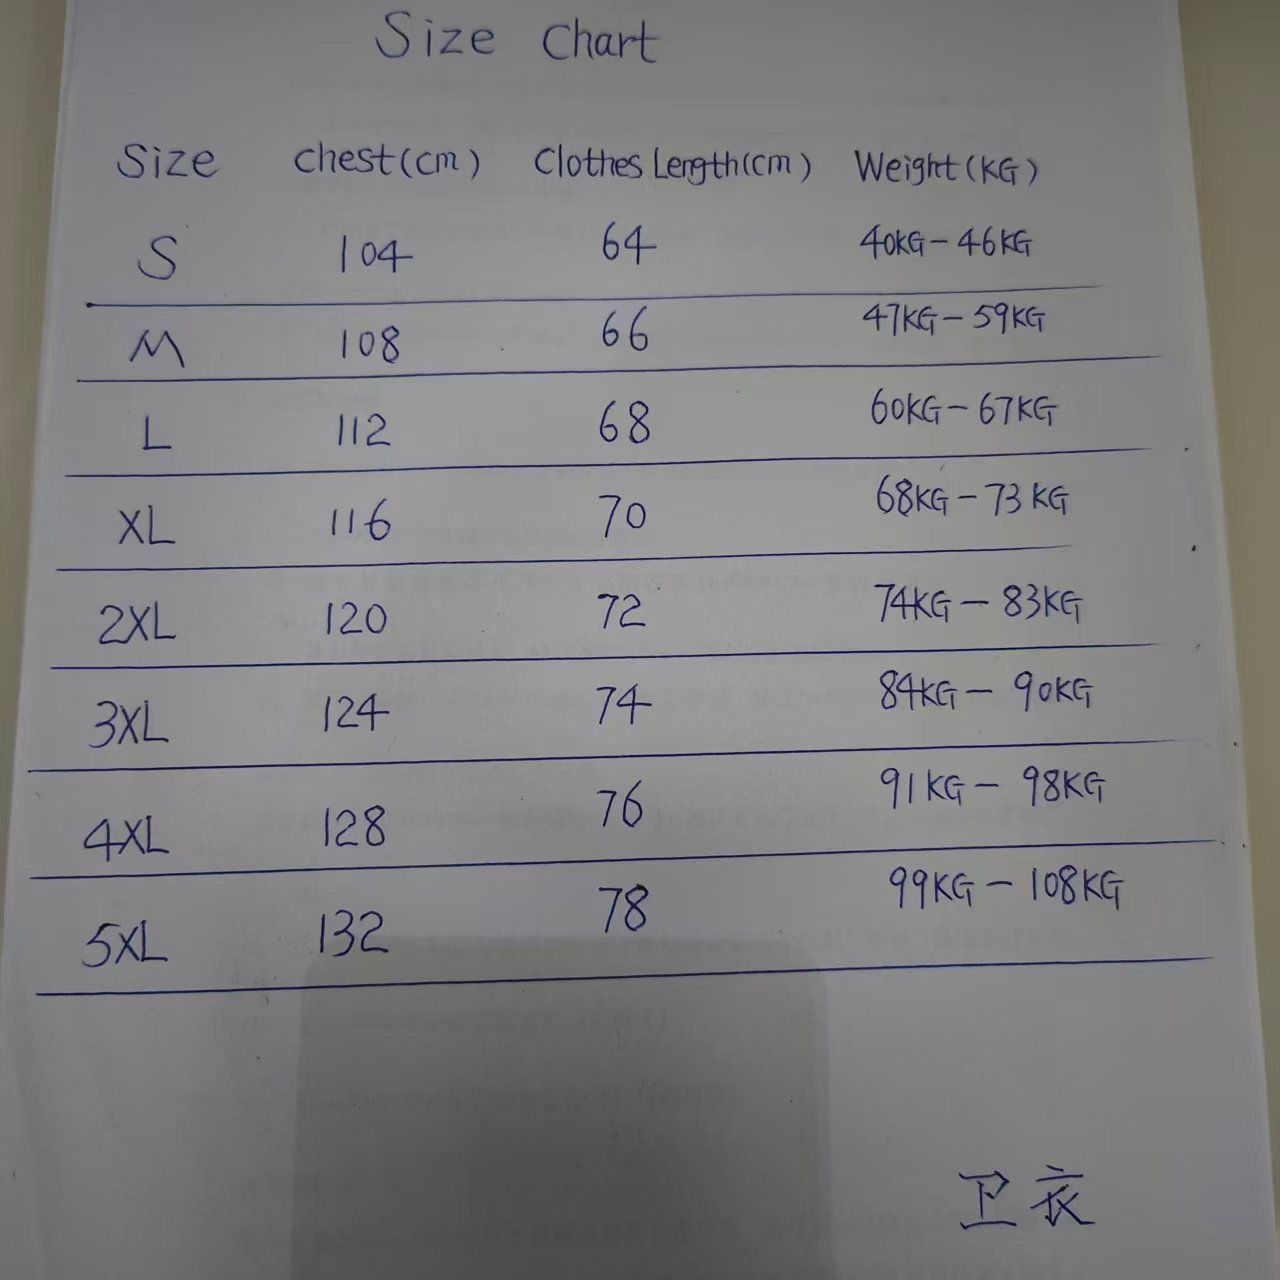 Size Chart
Size chest(cm) Clothes Length(cm) Weight(KG)
S 104 64 40KG-46KG
M 108 66 47KG-59KG
L 112 68 60KG-67KG
XL 116 70 68KG-73KG
2XL 120 72 74KG-83KG
3XL 124 74 84KG-90KG
4XL 128 76 91KG-98KG
5XL 132 78 99KG-108KG
卫衣